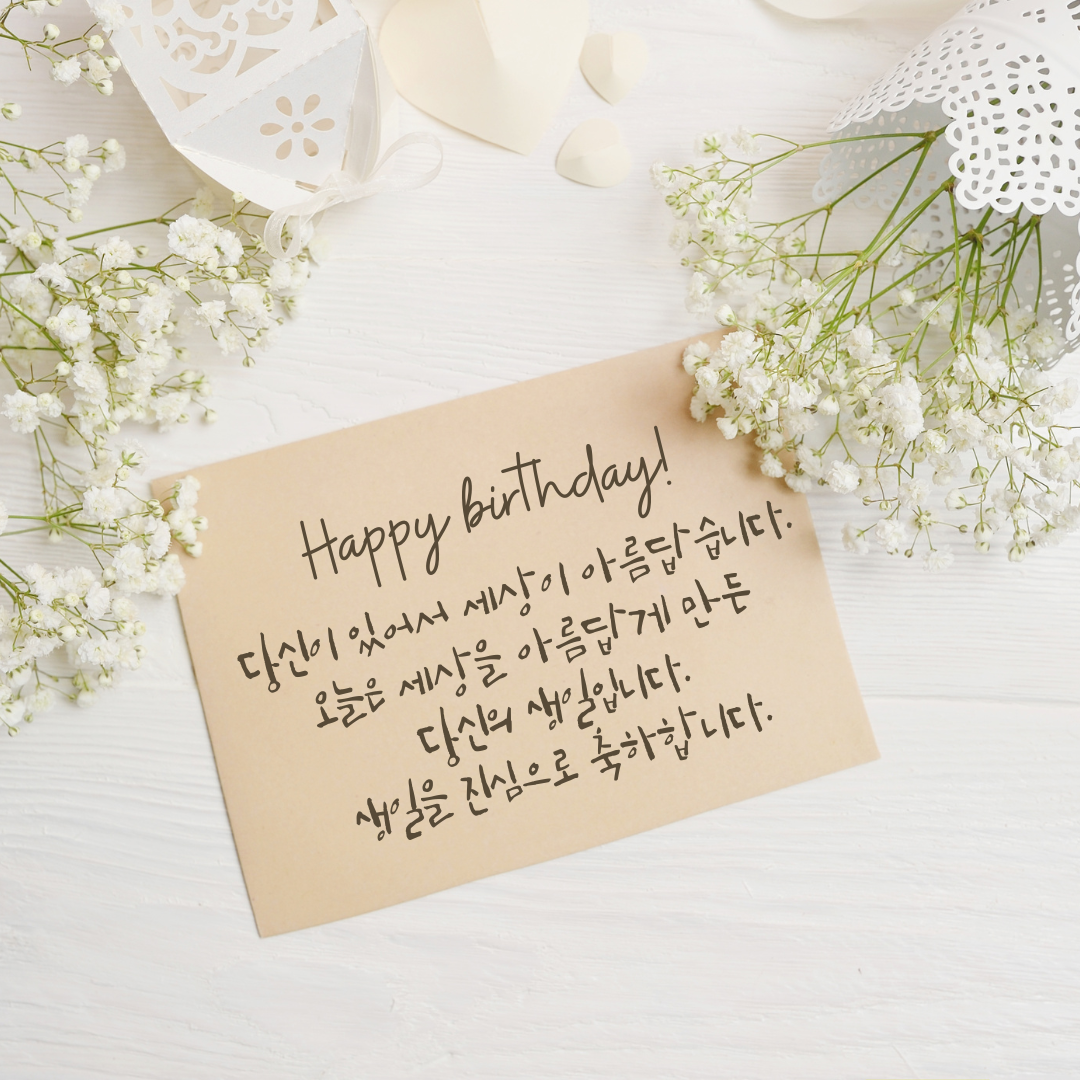 Happy birthday!
당신이 있어서 세상이 아름답습니다.
오늘은 세상을 아름답게 만든
당신의 생일입니다.
생일을 진심으로 축하합니다.